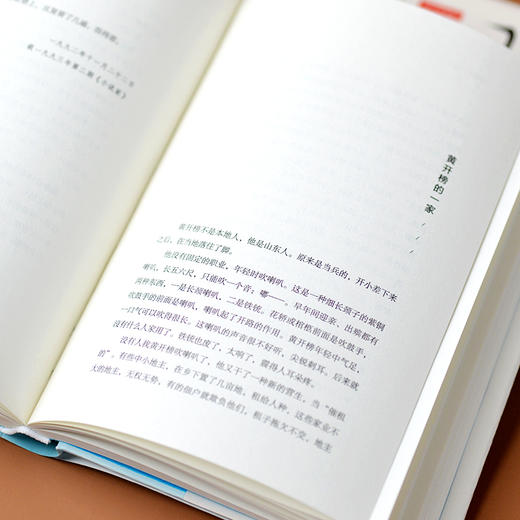 一九九二年十一月二十二日
载一九九三年第二期《小说家》
黄开榜的一家
黄开榜不是本地人，他是山东人。原来是当兵的，开小差下来
之后，在当地落住了脚。
他没有固定的职业，年轻时吹喇叭。这是一种细长颈子的紫铜
喇叭，长五六尺，只能吹一个音：嘟——。早年间迎亲、出殡都有
两种东西，一是长颈喇叭，二是铁铳。花轿或棺柩前面是吹鼓手，
吹鼓手的前面是喇叭，喇叭起了开路的作用。黄开榜年轻中气足，
一口气可以吹得很长。这喇叭的声音很不好听，尖锐刺耳。后来就
没有什么人家用了。铁铳也废了，太响了，震得人耳朵疼。
没有人找黄开榜吹喇叭了，他又干了一种新的营生，当“催租
的”。有些中小地主，在乡下置了几亩地，租给人种。这些家业不
大的地主，无权无势，有的佃户就欺负他们，租子拖欠不交。地主